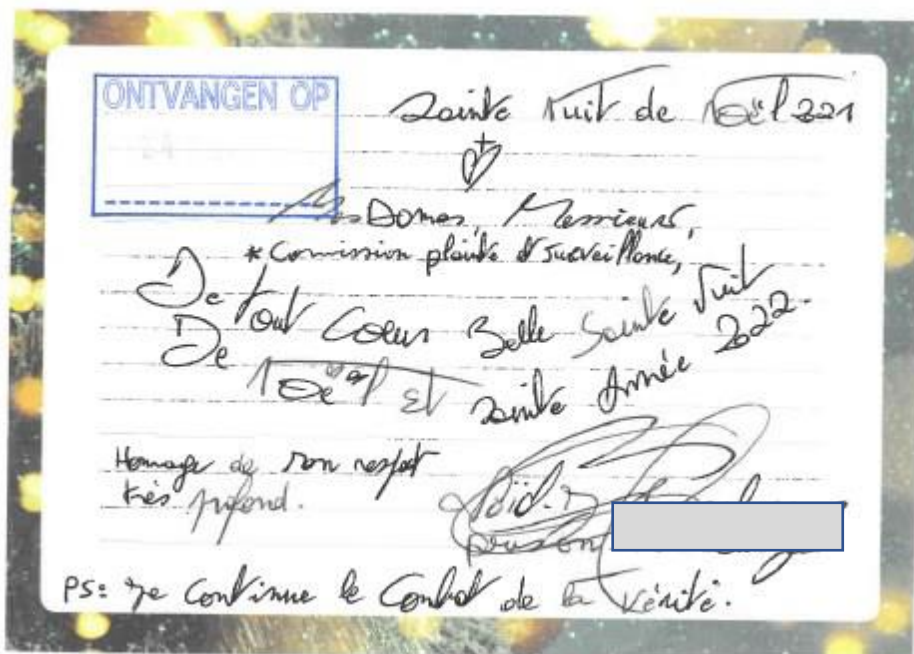 ONTVANGEN OP
Sainte Nuit de Noël 2021
MesDames, Messieurs,
* Commission plainte & surveillance,
De tout Coeur Belle Sainte Nuit
De Noël Et Sainte Année 2022.
Homage de mon respet
très profond.
prison
PS: Je Continue le Combat de la Vérité.